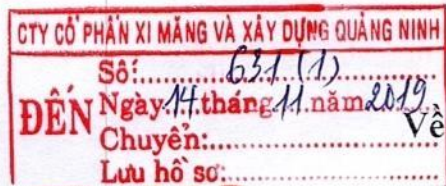 CTY CỔ PHẦN XI MĂNG VÀ XÂY DỰNG QUẢNG NINH
ĐẾN
Số: 631 (1)
Ngày 14 tháng 11 năm 2019
Chuyển:
Lưu hồ sơ:
Về